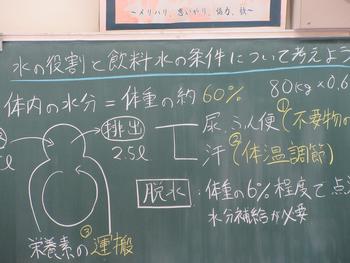 ～メリハリ、思いやり、協力、絆～
水の役割と飲料水の条件について考えよう
体内の水分＝体重の約60% 80kg×0.6
排出 尿、ふん便 ①(不要物の
2.5ℓ 汗 ②(体温調節)
ℓ
脱水：体重の6%程度で点
水分補給が必要
③
栄養素の運搬